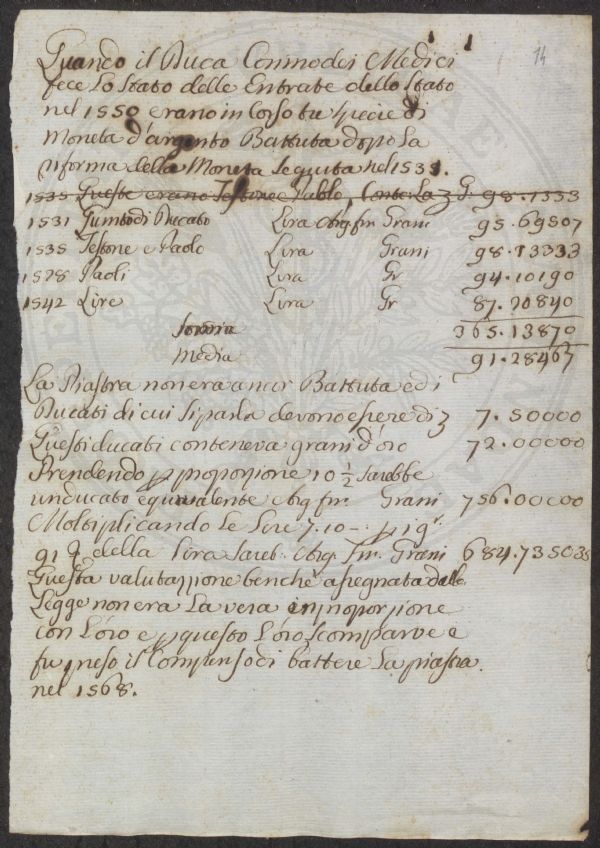 14
Quando il Duca Cosimo dei Medici
fece Lo Stato delle Entrate dello Stato
nel 1550 erano in Corso tre specie di
Moneta d'argento Battuta dopo La
riforma della Moneta Seguita nel 1531.
1535 Queste erano Testone e Paolo, Conto: La 3 G. 98.1333
1531 di Ducato Lira Arg. fin. Grani 95.69507
1535 Testone e Paolo Lira Grani 98.13333
1528 Paoli Lira Gr 94.10190
1542 Lire Lira Gr 87.20840
Somma 365.13870
Media 91.28467
La Piastra non era ancor Battuta ed i
Ducati di cui Si parla devono essere di 7.50000
Questi ducati conteneva grani d'oro 72.00000
Prendendo p proporzione 10 1/2 Sarebbe
un ducato equivalente Arg fin. Grani 756.00000
Moltiplicando Le Lire 7.10 -- p i gr.
91 della Lira Sareb. Arg. Fin. Grani 684.735035
Questa valutazzione benchè assegnata dalle
Legge non era La vera in proporzione
con L'oro e p questo L'oro scomparve e
fu preso il Compenso di battere La piastra
nel 1568.